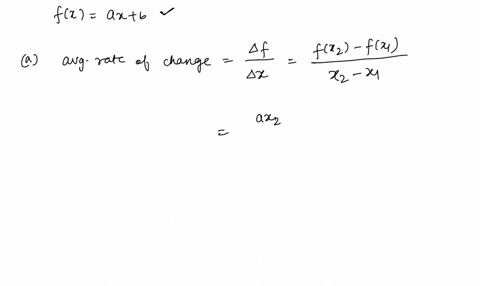 f(x) = ax+b ✓
(a) avg. rate of change = Δf/Δx = f(x₂) - f(x₁)/x₂ - x₁
= ax₂